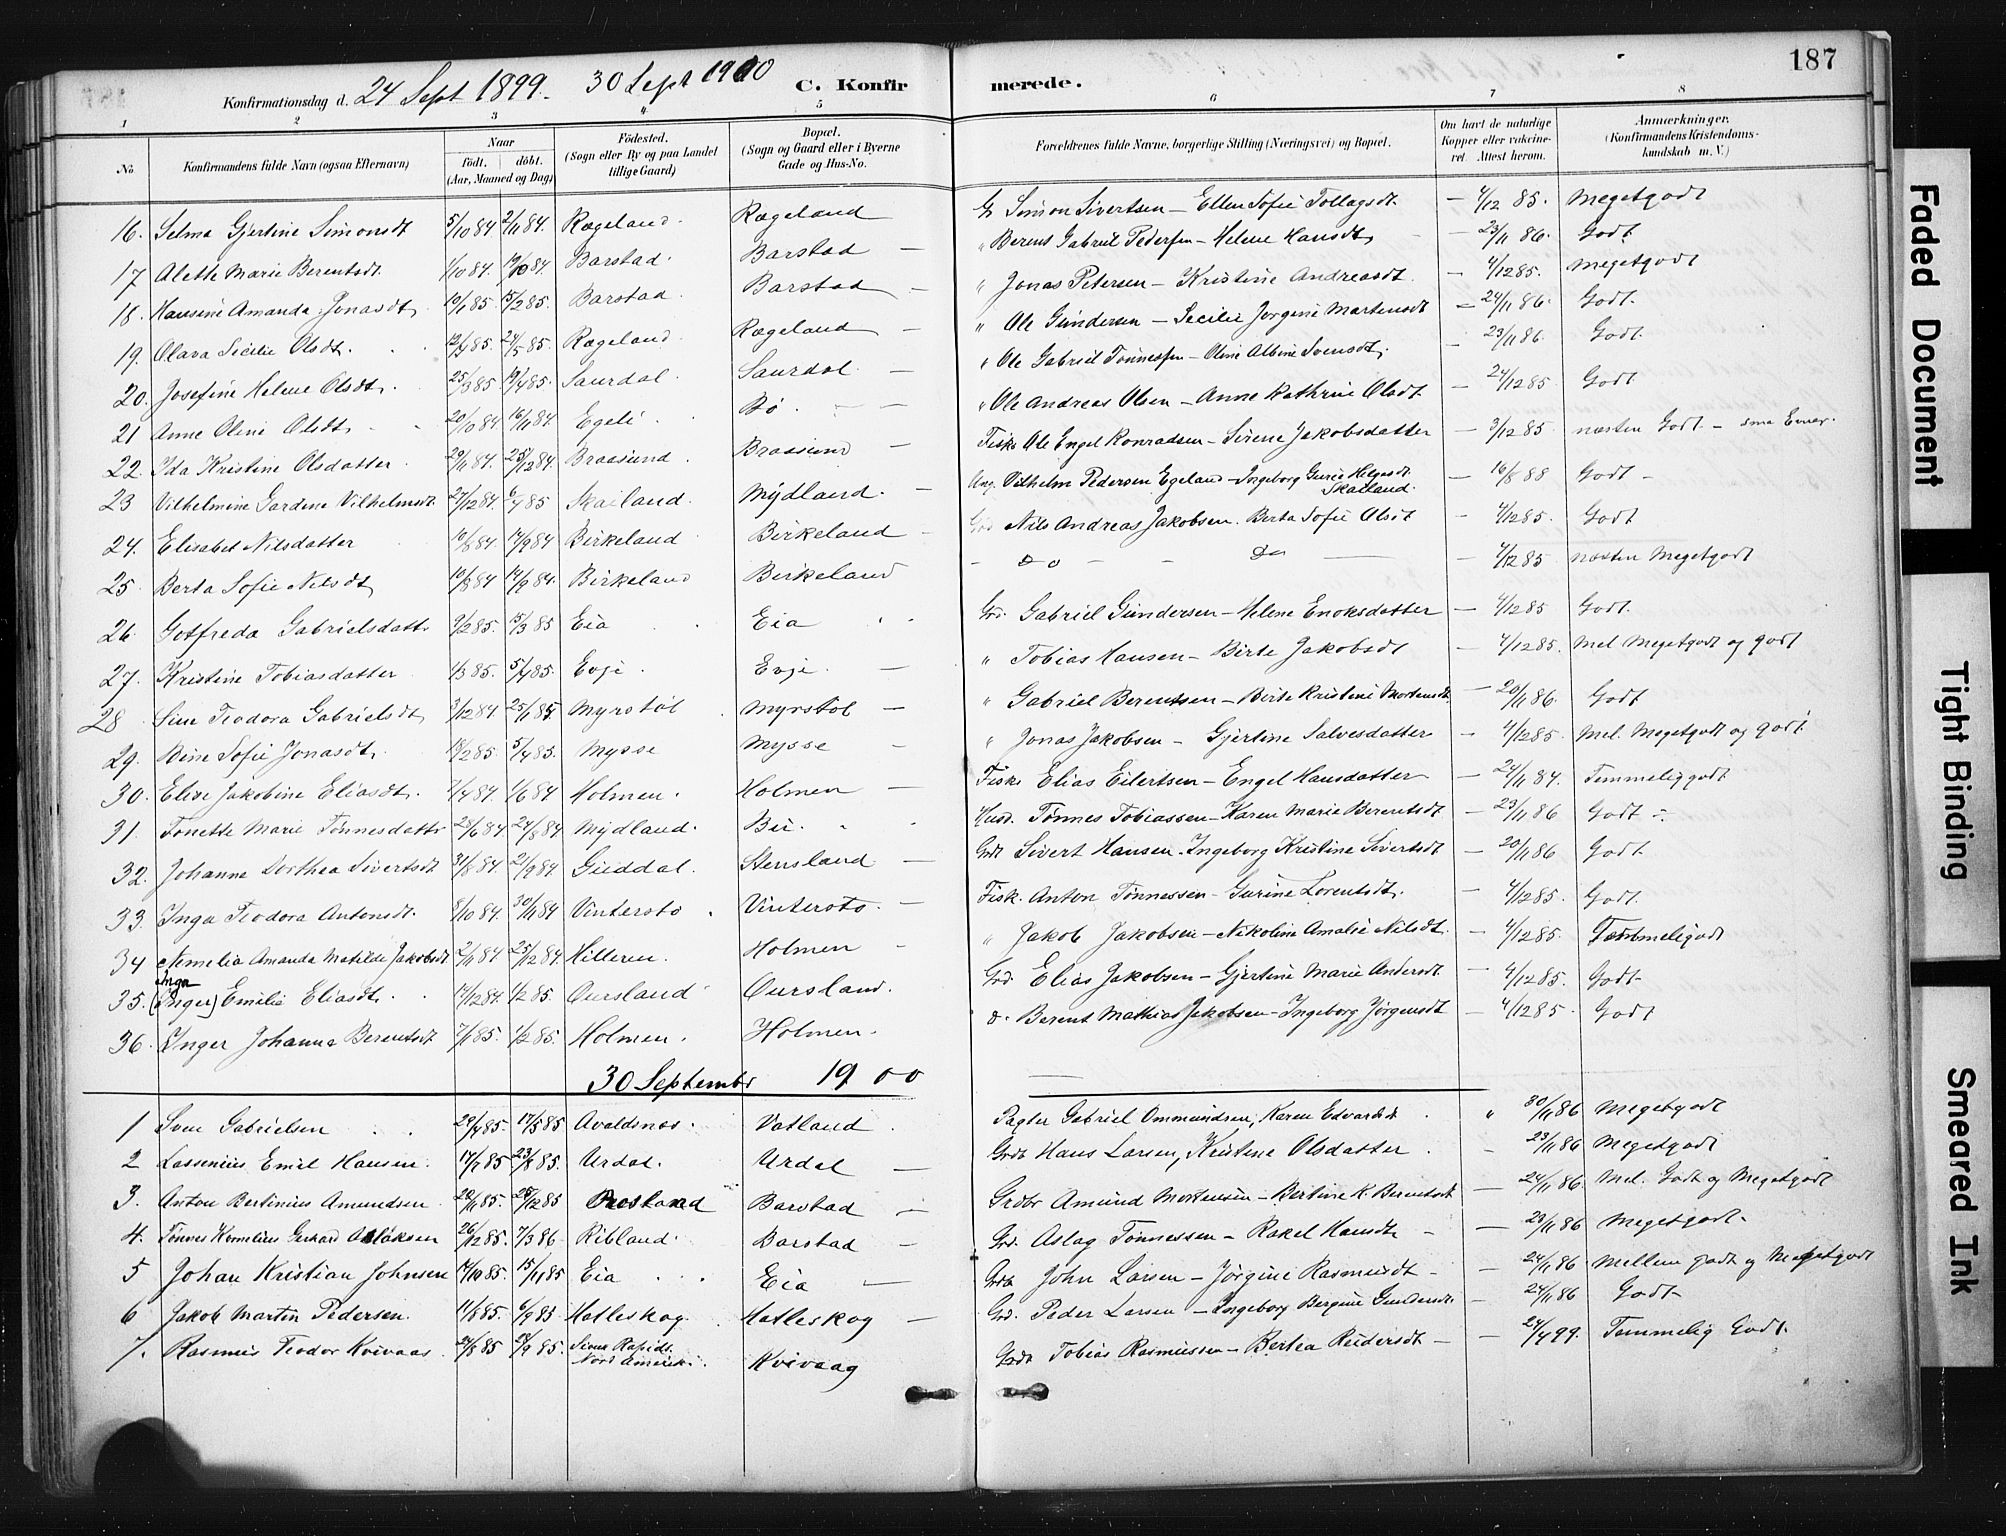 187
Konfirmationsdag d. 24 Sept 1899. 30 Sept 1900 C. Konfirmerede.
1 2 3 4 5 6 7 8
No. Konfirmandens fulde Navn (ogsaa Efternavn) Naar født. døbt. (Aar, Maaned og Dag) Fødested. (Sogn eller By og paa Landet tillige Gaard) Bopæl. (Sogn og Gaard eller i Byerne Gade og Hus-No. Forældrenes fulde Navne, borgerlige Stilling (Næringsvei) og Bopæl. Om havt de naturlige Kopper eller vakcineret. Attest herom. Anmærkninger. (Konfirmandens Kristendomskundskab m. V.)
16. Selma Gjertine Simonsdt 5/10 84 2/11 84. Rægeland. Rægeland G Simon Sivertsen — Ellen Sofie Tollagsdt. — 4/12 85. Megetgodt
17 Alette Marie Berentsdt. 1/10 84. 19/10 84. Barstad. Barstad — „ Berent Gabriel Pedersen — Helene Hansdt, — 23/11 86. Godt.
18. Hansine Amanda Jonasdt. 10/1 85 15/2 85. Barstad. Barstad — „ Jonas Petersen — Kristine Andreasdt. — 4/12 85. Megetgodt
19. Olava Secilie Olsdt. 12/4 85. 24/5 85. Rægeland. Rægeland — „ Ole Gundersen — Secilie Jørgine Martensdt — 24/11 86. Godt.
20. Josefine Helene Olsdt. 25/3 85 19/4 85. Saurdal. Saurdal. — „ Ole Gabriel Tønnessen — Oline Albine Svensdt. — 23/11 86. Godt.
21 Anne Oline Olsdt. 20/10 84 16/11 84 Egeli. Bø. — — „ Ole Andreas Olsen — Anne Kathrine Olsdt — 24/12 85. Godt.
22. Ida Kristine Olsdatter. 29/11 84. 25/12 84. Braasund. Braasund — Fisk. Ole Engel Konradsen — Sirene Jakobsdatter — 3/12 85. næsten Godt —
23 Vilhelmine Gardine Vilhelmsdt. 27/12 84. 6/4 85 Skailand. Mydland. — Ung. Vilhelm Pedersen Egeland — Ingeborg Gurie Helgesdt. Skailand. — 16/8 88 Godt —
24. Elisabet Nilsdatter 10/8 84. 14/9 84 Birkeland Birkeland — Grd Nils Andreas Jakobsen. Berta Sofie Olsdt — 4/12 85. Godt
25. Berta Sofie Nilsdt, 10/8 84 14/9 84. Birkeland Birkeland — Do — Do — 4/12 85 næsten Megetgodt
26. Gotfreda Gabrielsdattr 9/2 85. 15/3 85 Eia Eia Grd. Gabriel Gundersen — Helene Enoksdatter — 4/12 85 Godt.
27. Kristine Tobiasdatter 1/3 85. 5/4 85. Evje. Evje. — „ Tobias Hansen — Birte Jakobsdt — 4/12 85. Mel Megetgodt og godt
28 Sine Teodora Gabrielsdt, 3/12 84 25/1 85. Myrstøl. Myrstøl — „ Gabriel Berentsen — Birte Kristine Mortensdt — 20/11 86. Godt
29. Sofie Jonasdt, 18/2 85. 5/4 85. Mysse Mysse — „ Jonas Jakobsen — Gjertine Salvesdatter — 4/12 85. Mel. Megetgodt og godt.
30. Elise Jakobine Eliasdt. 2/4 84. 1/6 84 Holmen. Holmen — Fisk. Elias Eilertsen — Engel Hansdatter — 24/11 84. Temmeliggodt
31. Tonette Marie Tønnesdattr 28/6 84 24/8 84 Mydland. Bu. Husd. Tønnes Tobiassen — Karen Marie Berentsdt — 23/11 86 Godt —
32. Johanne Dorthea Sivertsdt 31/8 84. 21/9 84 Guddal. Stensland — Grdb Sivert Hansen. Ingeborg Kristine Sivertsdt — 20/11 86 Godt.
33. Inga Teodora Antonsdt. 8/10 84. 30/11 84 Vintersto. Vintersto. — Fisk. Anton Tønnessen — Gurine Lorentsdt. — 4/12 85. Godt.
34 Nemelia Amanda Matilde Jakobsdt 2/11 84 25/12 84. Hilleren. Holmen — „ Jakob Jakobsen — Nikoline Amalie Nilsdt. — 4/12 85. Temmeligodt
35. Inga (Inger) Emilie Eliasdt. 17/12 84. 1/2 85. Oursland Oursland. Grd Elias Jakobsen — Gjertine Marie Andersdt. — 4/12 85. Godt.
36. Inger Johanna Berentsdt 7/1 85. 1/2 85. Holmen. Holmen. Berent Mathias Jakobsen — Ingeborg Jørgensdt — 4/12 85. Godt
30 Septembr 1900
1 Sven Gabrielsen 29/4 85. 17/5 85 Avaldsnæs. Vatland. Pagter Gabriel Ommundsen, Karen Edvardsdt. „ 30/11 86 Megetgodt
2 Lassenius Emil Hansen. 17/7 85 23/8 85. Urdal. Urdal — Grdb Hans Larsen, Kristine Olsdatter. — 23/11 86 Megetgodt
3. Anton Bertinius Amundsen 20/11 85. 25/12 85 Oursland Barstad — Grdbr Amund Mortensen — Bertine K. Berentsdt — 24/11 86 Mel. Godt og Megetgodt
4. Tønnes Kornelius Gerhard Aslaksen 26/12 85. 7/3 86 Ribland. Barstad — Grd. Aslag Tønnessen — Rakel Hansdtr — — 23/11 86 Megetgodt.
5 Johan Kristian Johnsen 14/10 85. 15/11 85 Eia Eia — Grdb John Larsen — Jørgine Rasmusdt — — 24/11 86 Mellem godt og Megetgodt
6 Jakob Martin Pedersen. 11/8 85. 6/9 85 Hatleskog. Hatleskog — Grd. Peder Larsen — Ingeborg Bergine Gundersdt. — 24/11 86 Godt
7. Rasmus Teodor Kvivaag. 24/8 85 29/9 85. Sioux Rapids. Nord Amerika. Kvivaag Grdb Tobias Rasmussen — Bertea Reidersdt — — 24/4 99. Temmelig Godt.
Faded Document
Tight Binding
Smeared Ink